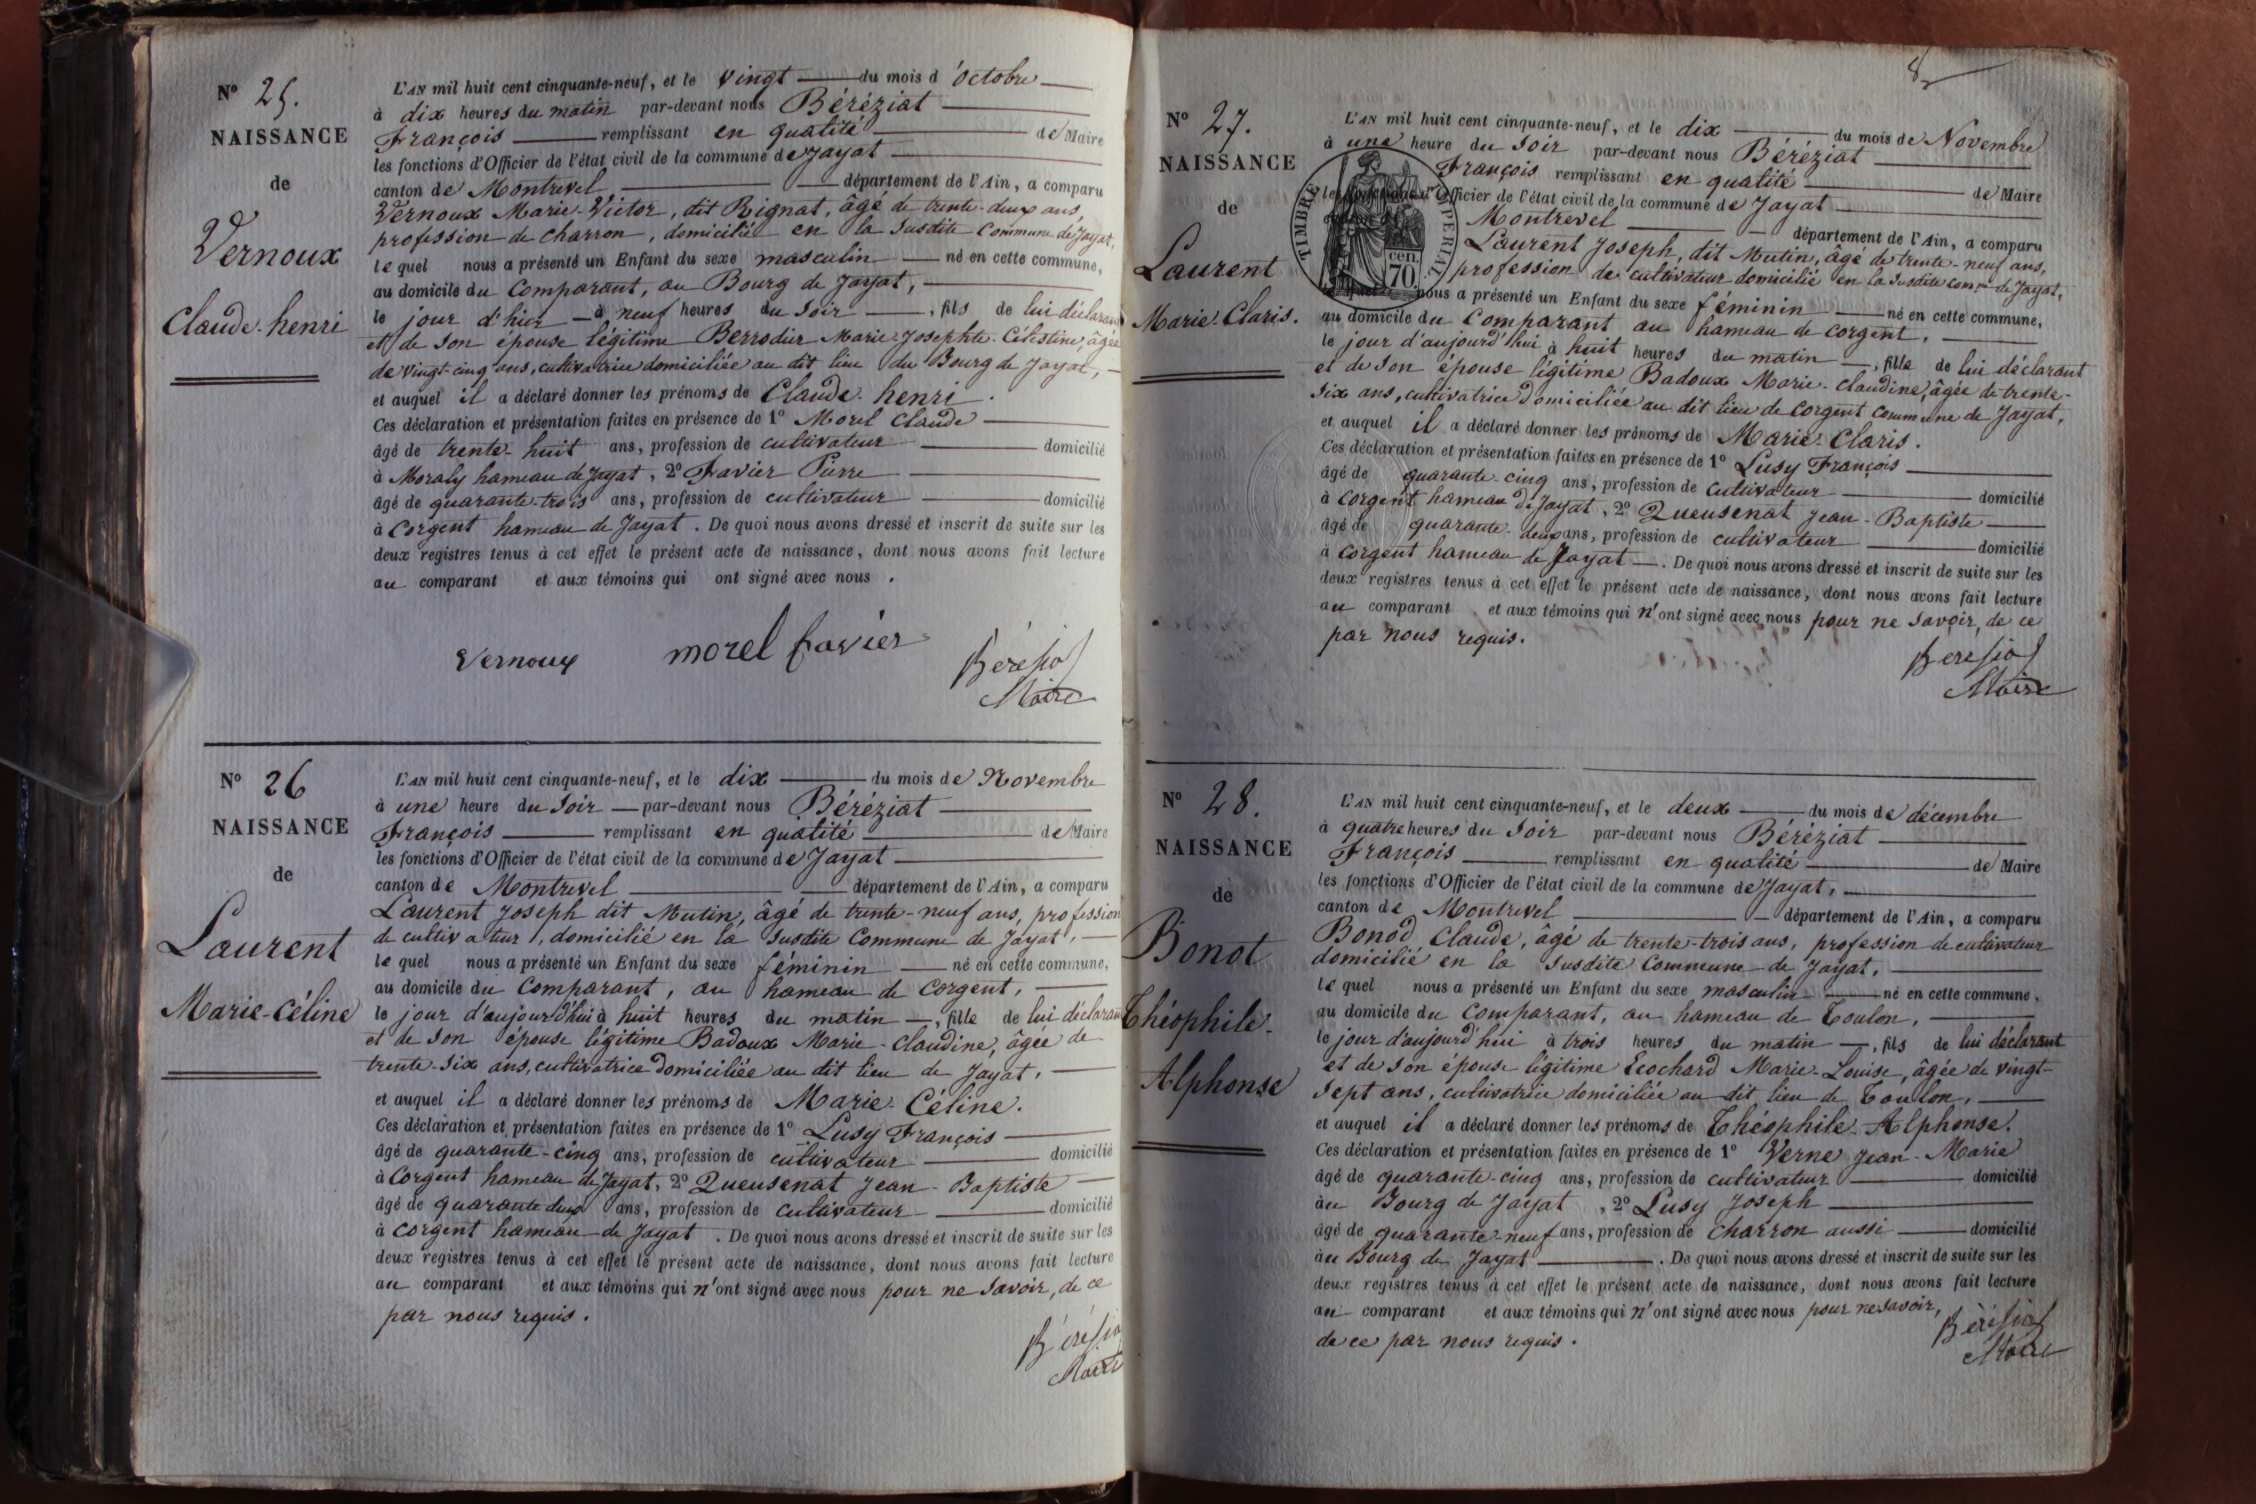 N° 25.
NAISSANCE
de
Vernoux
Claude-henri
L'AN mil huit cent cinquante-neuf, et le vingt du mois d'octobre
à dix heures du matin par-devant nous Béréziat
François remplissant en qualité de Maire
les fonctions d'Officier de l'état civil de la commune de Jayat
canton de Montrevel département de l'Ain, a comparu
Vernoux Marie-Victor, dit Rignat, âgé de trente-deux ans,
profession de charron, domicilié en la susdite Commune de Jayat,
lequel nous a présenté un Enfant du sexe masculin né en cette commune,
au domicile du Comparant, au Bourg de Jayat,
le jour d'hier à neuf heures du soir, fils de lui déclarant
et de son épouse légitime Berrodier Marie-Josephte-Célestine, âgée
de vingt-cinq ans, cultivatrice domiciliée au dit lieu du Bourg de Jayat,
et auquel il a déclaré donner les prénoms de Claude-henri.
Ces déclaration et présentation faites en présence de 1° Morel Claude
âgé de trente-huit ans, profession de cultivateur domicilié
à Moraly hameau de Jayat, 2° Favier Pierre
âgé de quarante-trois ans, profession de cultivateur domicilié
à Corgent hameau de Jayat. De quoi nous avons dressé et inscrit de suite sur les
deux registres tenus à cet effet le présent acte de naissance, dont nous avons fait lecture
au comparant et aux témoins qui ont signé avec nous.
Vernoux morel favier Béréziat
Maire
N° 26
NAISSANCE
de
Laurent
Marie-Céline
L'AN mil huit cent cinquante-neuf, et le dix du mois de Novembre
à une heure du soir par-devant nous Béréziat
François remplissant en qualité de Maire
les fonctions d'Officier de l'état civil de la commune de Jayat
canton de Montrevel département de l'Ain, a comparu
Laurent Joseph dit Mutin, âgé de trente-neuf ans, profession
de cultivateur, domicilié en la susdite Commune de Jayat,
lequel nous a présenté un Enfant du sexe féminin né en cette commune,
au domicile du Comparant, au hameau de Corgent,
le jour d'aujourd'hui à huit heures du matin, fille de lui déclarant
et de son épouse légitime Badoux Marie-Claudine, âgée de
trente-six ans, cultivatrice domiciliée au dit lieu de Jayat,
et auquel il a déclaré donner les prénoms de Marie-Céline.
Ces déclaration et présentation faites en présence de 1° Lusy François
âgé de quarante-cinq ans, profession de cultivateur domicilié
à Corgent hameau de Jayat, 2° Queusenat Jean-Baptiste
âgé de quarante deux ans, profession de cultivateur domicilié
à Corgent hameau de Jayat. De quoi nous avons dressé et inscrit de suite sur les
deux registres tenus à cet effet le présent acte de naissance, dont nous avons fait lecture
au comparant et aux témoins qui n'ont signé avec nous pour ne savoir, de ce
par nous requis.
Béréziat
Maire
8
N° 27.
NAISSANCE
de
Laurent
Marie-Claris.
TIMBRE IMPERIAL
70 cen.
L'AN mil huit cent cinquante-neuf, et le dix du mois de Novembre
à une heure du soir par-devant nous Béréziat
François remplissant en qualité de Maire
les fonctions d'Officier de l'état civil de la commune de Jayat
Montrevel département de l'Ain, a comparu
Laurent Joseph, dit Mutin, âgé de trente-neuf ans,
profession de cultivateur domicilié en la susdite com.ne de Jayat,
nous a présenté un Enfant du sexe féminin né en cette commune,
au domicile du Comparant au hameau de Corgent,
le jour d'aujourd'hui à huit heures du matin, fille de lui déclarant
et de son épouse légitime Badoux Marie-Claudine, âgée de trente-
six ans, cultivatrice domiciliée au dit lieu de Corgent Commune de Jayat,
et auquel il a déclaré donner les prénoms de Marie-Claris.
Ces déclaration et présentation faites en présence de 1° Lusy François
âgé de quarante-cinq ans, profession de cultivateur domicilié
à Corgent hameau de Jayat, 2° Queusenat Jean-Baptiste
âgé de quarante-deux ans, profession de cultivateur domicilié
à Corgent hameau de Jayat. De quoi nous avons dressé et inscrit de suite sur les
deux registres tenus à cet effet le présent acte de naissance, dont nous avons fait lecture
au comparant et aux témoins qui n'ont signé avec nous pour ne savoir, de ce
par nous requis.
Béréziat
Maire
N° 28.
NAISSANCE
de
Bonot
Théophile-
Alphonse
L'AN mil huit cent cinquante-neuf, et le deux du mois de décembre
à quatre heures du soir par-devant nous Béréziat
François remplissant en qualité de Maire
les fonctions d'Officier de l'état civil de la commune de Jayat,
canton de Montrevel département de l'Ain, a comparu
Bonod Claude, âgé de trente-trois ans, profession de cultivateur
domicilié en la susdite Commune de Jayat,
lequel nous a présenté un Enfant du sexe masculin né en cette commune,
au domicile du Comparant, au hameau de Toulon,
le jour d'aujourd'hui à trois heures du matin, fils de lui déclarant
et de son épouse légitime Ecochard Marie-Louise, âgée de vingt-
sept ans, cultivatrice domiciliée au dit lieu de Toulon,
et auquel il a déclaré donner les prénoms de Théophile-Alphonse.
Ces déclaration et présentation faites en présence de 1° Verne Jean-Marie
âgé de quarante-cinq ans, profession de cultivateur domicilié
au Bourg de Jayat, 2° Lusy Joseph
âgé de quarante-neuf ans, profession de charron aussi domicilié
au Bourg de Jayat. De quoi nous avons dressé et inscrit de suite sur les
deux registres tenus à cet effet le présent acte de naissance, dont nous avons fait lecture
au comparant et aux témoins qui n'ont signé avec nous pour ne savoir,
de ce par nous requis.
Béréziat
Maire